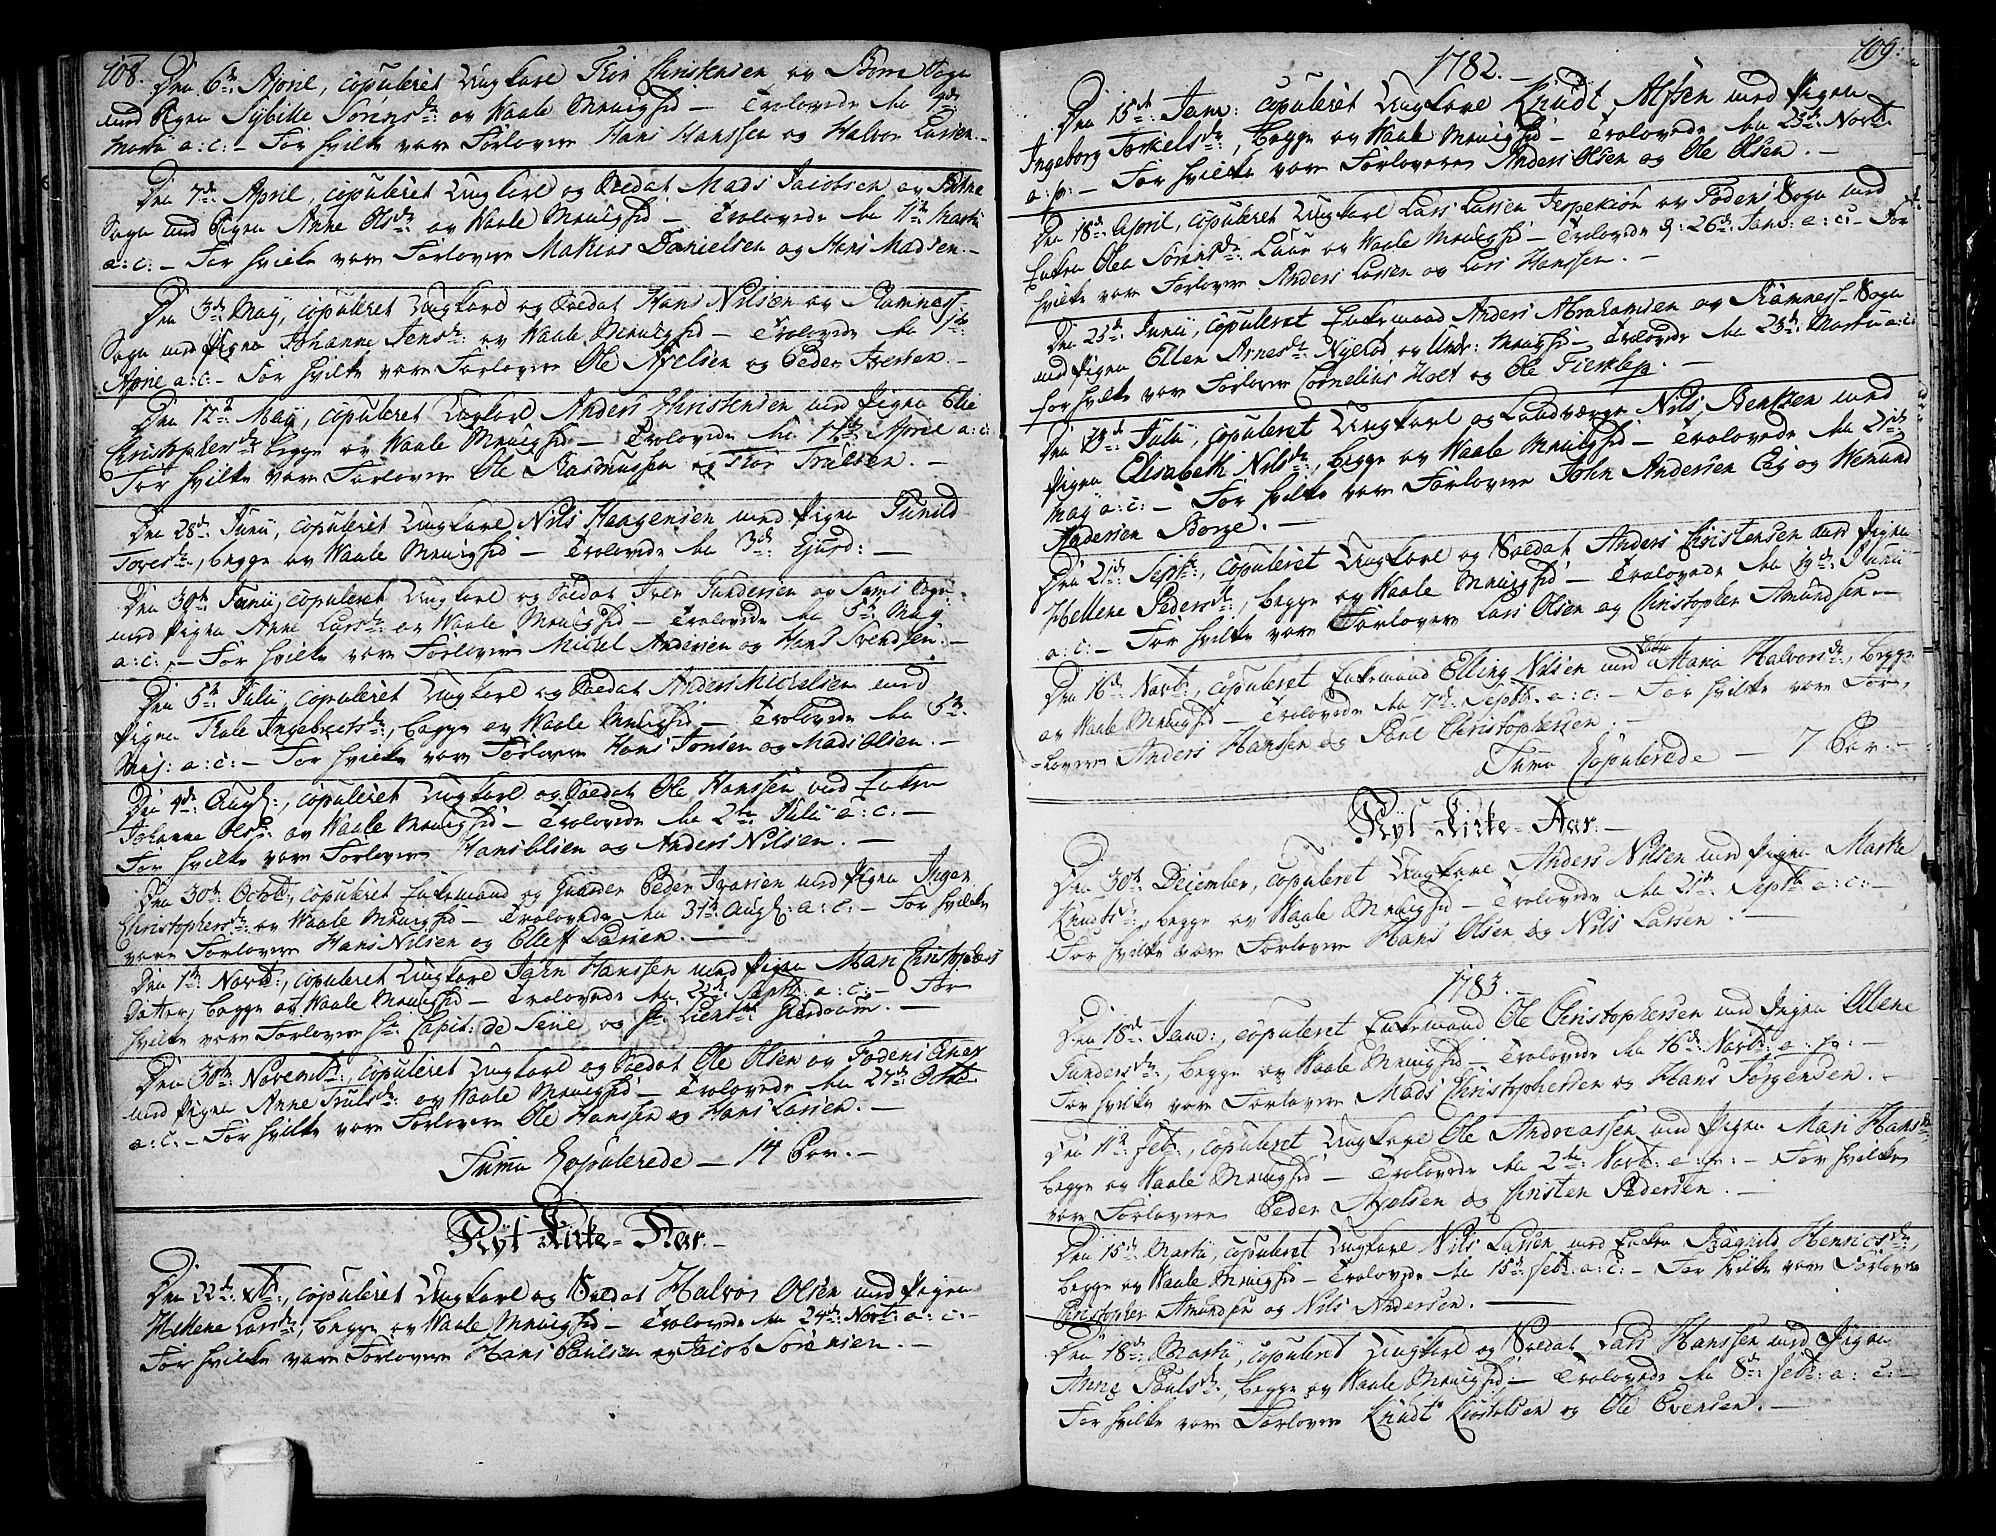 108.
Den 6te April, copuleret Ungkarl Thor Christensen av Borre Sogn
med Pigen Sybille Sørensdr: av Waale Menighd — Trolovede den 9de
Martii a: c: — For hvilke vare Forlovere Hans Hanssen og Halvor Larsen —
Den 7de April copuleret Ungkarl og Soldat Mads Jacobsen av
Sogn med Pigen Anne Olsdr av Waale Menighd — Trolovede den 11te Martii
a: c: — For hvilke vare Forlovere Mathias Danielsen og Hans Madsen. —
Den 3de May, copuleret Ungkarl og Soldat Hans Nilsen av Ramness-
Sogn med Pigen Johanne Jensdr: av Waale Menighd — Trolovede den
April a: c: — For hvilke vare Forlovere Ole Axelsen og Peder Iversen. —
Den 12te May, copuleret Ungkarl Anders Christensen med Pigen Elie
Christophersdr: begge av Waale Menighd — Trolovede den 17de April a: c:
For hvilke vare Forlovere Ole Rasmussen og Thor Trulsen. —
Den 28de Junii, copuleret Ungkarl Nils Haagensen med Pigen Gunild
Toresdr:, begge av Waale Menighd — Trolovede den 3de Ejusd: —
Den 30te Junii, copuleret Ungkarl og Soldat Iver Gundersen av Sems Sogn
med Pigen Anne Larsdr: av Waale Menighd — Trolovede den 5te May
a: c: — For hvilke vare Forlovere Michel Andersen og Hans Svendsen. —
Den 5te Julii copuleret Ungkarl og Soldat Anders Michelsen med
Pigen Thale Ingebretsdr:, begge av Waale Menighd — Trolovede den 5te
Maj: a: c: — For hvilke vare Forlovere Hans Jonsen og Mads Olsen. —
Den 4de Augs:, copuleret Ungkarl og Soldat Ole Hanssen med Enken
Johanne Olsdr: av Waale Menighd — Trolovede den 2den Julii a: c: —
For hvilke vare Forlovere Hans Olsen og Anders Nilsen. —
Den 30te Octbr:, copuleret Enkemand og Peder Iversen med Pigen Inger
Christophersdr: av Waale Menighd — Trolovede den 31te Augs: a: c: — For hvilke
vare Forlovere Hans Nilsen og Elleff Larsen. —
Den 1te Novbr:, copuleret Ungkarl Jahn Hanssen med Pigen Mari Christophers
Datter, begge av Waale Menighd — Trolovede den Septbr: a: c: — For
hvilke vare Forlovere Hr: Capit: de Seue og Hr: Lieut:
Den 30te Novembr:, copuleret Ungkarl og Soldat Ole Olsen av Fodens Anex
med Pigen Anne Trulsdr: av Waale Menighd — Trolovede den 27de Octbr:
a: c: — For hvilke vare Forlovere Ole Hanssen og Hans Larsen. —
Suma Copulerede — 14 Par. —
Nyt Kirke-Aar. —
Den 22de Xbr:, copuleret Ungkarl og Soldat Halvor Olsen med Pigen
Hellene Larsdr:, begge av Waale Menighd — Trolovede den 24de Novbr: a: c: —
For hvilke vare Forlovere Hans Paulsen og Jacob Sørensen. —
109:
1782. —
Den 15de Janv: copuleret Ungkarl Knudt Alfsen med Pigen
Ingeborg Torkelsdr:, begge av Waale Menighd — Trolovede den 23de Novbr:
a: p: — For hvilke vare Forlovere Anders Olsen og Ole Olsen. —
Den 18de April, copuleret Ungkarl Lars Larsen av Fodens Sogn med
Enken Olea Sørensdr: av Waale Menighd — Trolovede d: 26de Janv: a: c: — For
hvilke vare Forlovere Anders Larsen og Lars Hanssen. —
Den 25de Junii, copuleret Enkemand Anders Abrahamsen av Ramness-Sogn
med Pigen Ellen Arnesdr: Nyerød av Menighd — Trolovede den 23de Martii a: c:
for hvilke vare Forlovere Cornelius Holt og Ole —
Den 19de Julii, copuleret Ungkarl og Landværge Nils Bentzen med
Pigen Elisabeth Nilsdr:, begge av Waale Menighd — Trolovede den 21de
Maÿ a: c: — For hvilke vare Forlovere John Andersen og Wemund
Andersen Borge. —
Den 21de Septbr:, copuleret Ungkarl og Soldat Anders Christensen med Pigen
Hellene Pedersdr:, begge av Waale Menighd — Trolovede den 19de Junii
a: c: — For hvilke vare Forlovere Lars Olsen og Christopher Amundsen. —
Den 16de Novbr:, copuleret Enkemand Elling Nilsen med Maria Halvorsdr:, begge
av Waale Menighd — Trolovede den 7de Septbr: a: c: — For hvilke vare For-
-lovere Anders Hanssen og Poul Christophersen. —
Suma Copulerede — 7 Par. —
Nyt Kirke-Aar. —
Den 30te December, copuleret Ungkarl Anders Nilsen med Pigen Marthe
Knudtsdr:, begge av Waale Menighd — Trolovede den 21de Septbr: a: c: —
For hvilke vare Forlovere Hans Olsen og Nils Larsen. —
1783. —
Den 18de Janv:, copuleret Enkemand Ole Christophersen med Pigen Ollene
Gundersdr:, begge av Waale Menighd — Trolovede den 16de Novbr: a: p: —
For hvilke vare Forlovere Mads Christophersen og Hans Jørgensen. —
Den 11te Febr:, copuleret Ungkarl Ole Andreassen med Pigen Mari Hansdr:
begge av Waale Menighd — Trolovede den 2den Novbr: a: p: — For hvilke
vare Forlovere Peder Axelsen og Christen Pedersen. —
Den 15de Martii, copuleret Ungkarl Nils Larsen med Enken Ragnild Henricsdr:,
begge av Waale Menighd — Trolovede den 15de Febr: a: c: — For hvilke vare Forlovere
Christopher Amundsen og Nils Andersen. —
Den 18de Martii, copuleret Ungkarl og Soldat Lars Hanssen med Pigen
Anne Poulsdr:, begge av Waale Menighd — Trolovede den 8de Febr: a: c: —
For hvilke vare Forlovere Knudt Kiøstolsen og Ole Evensen. —